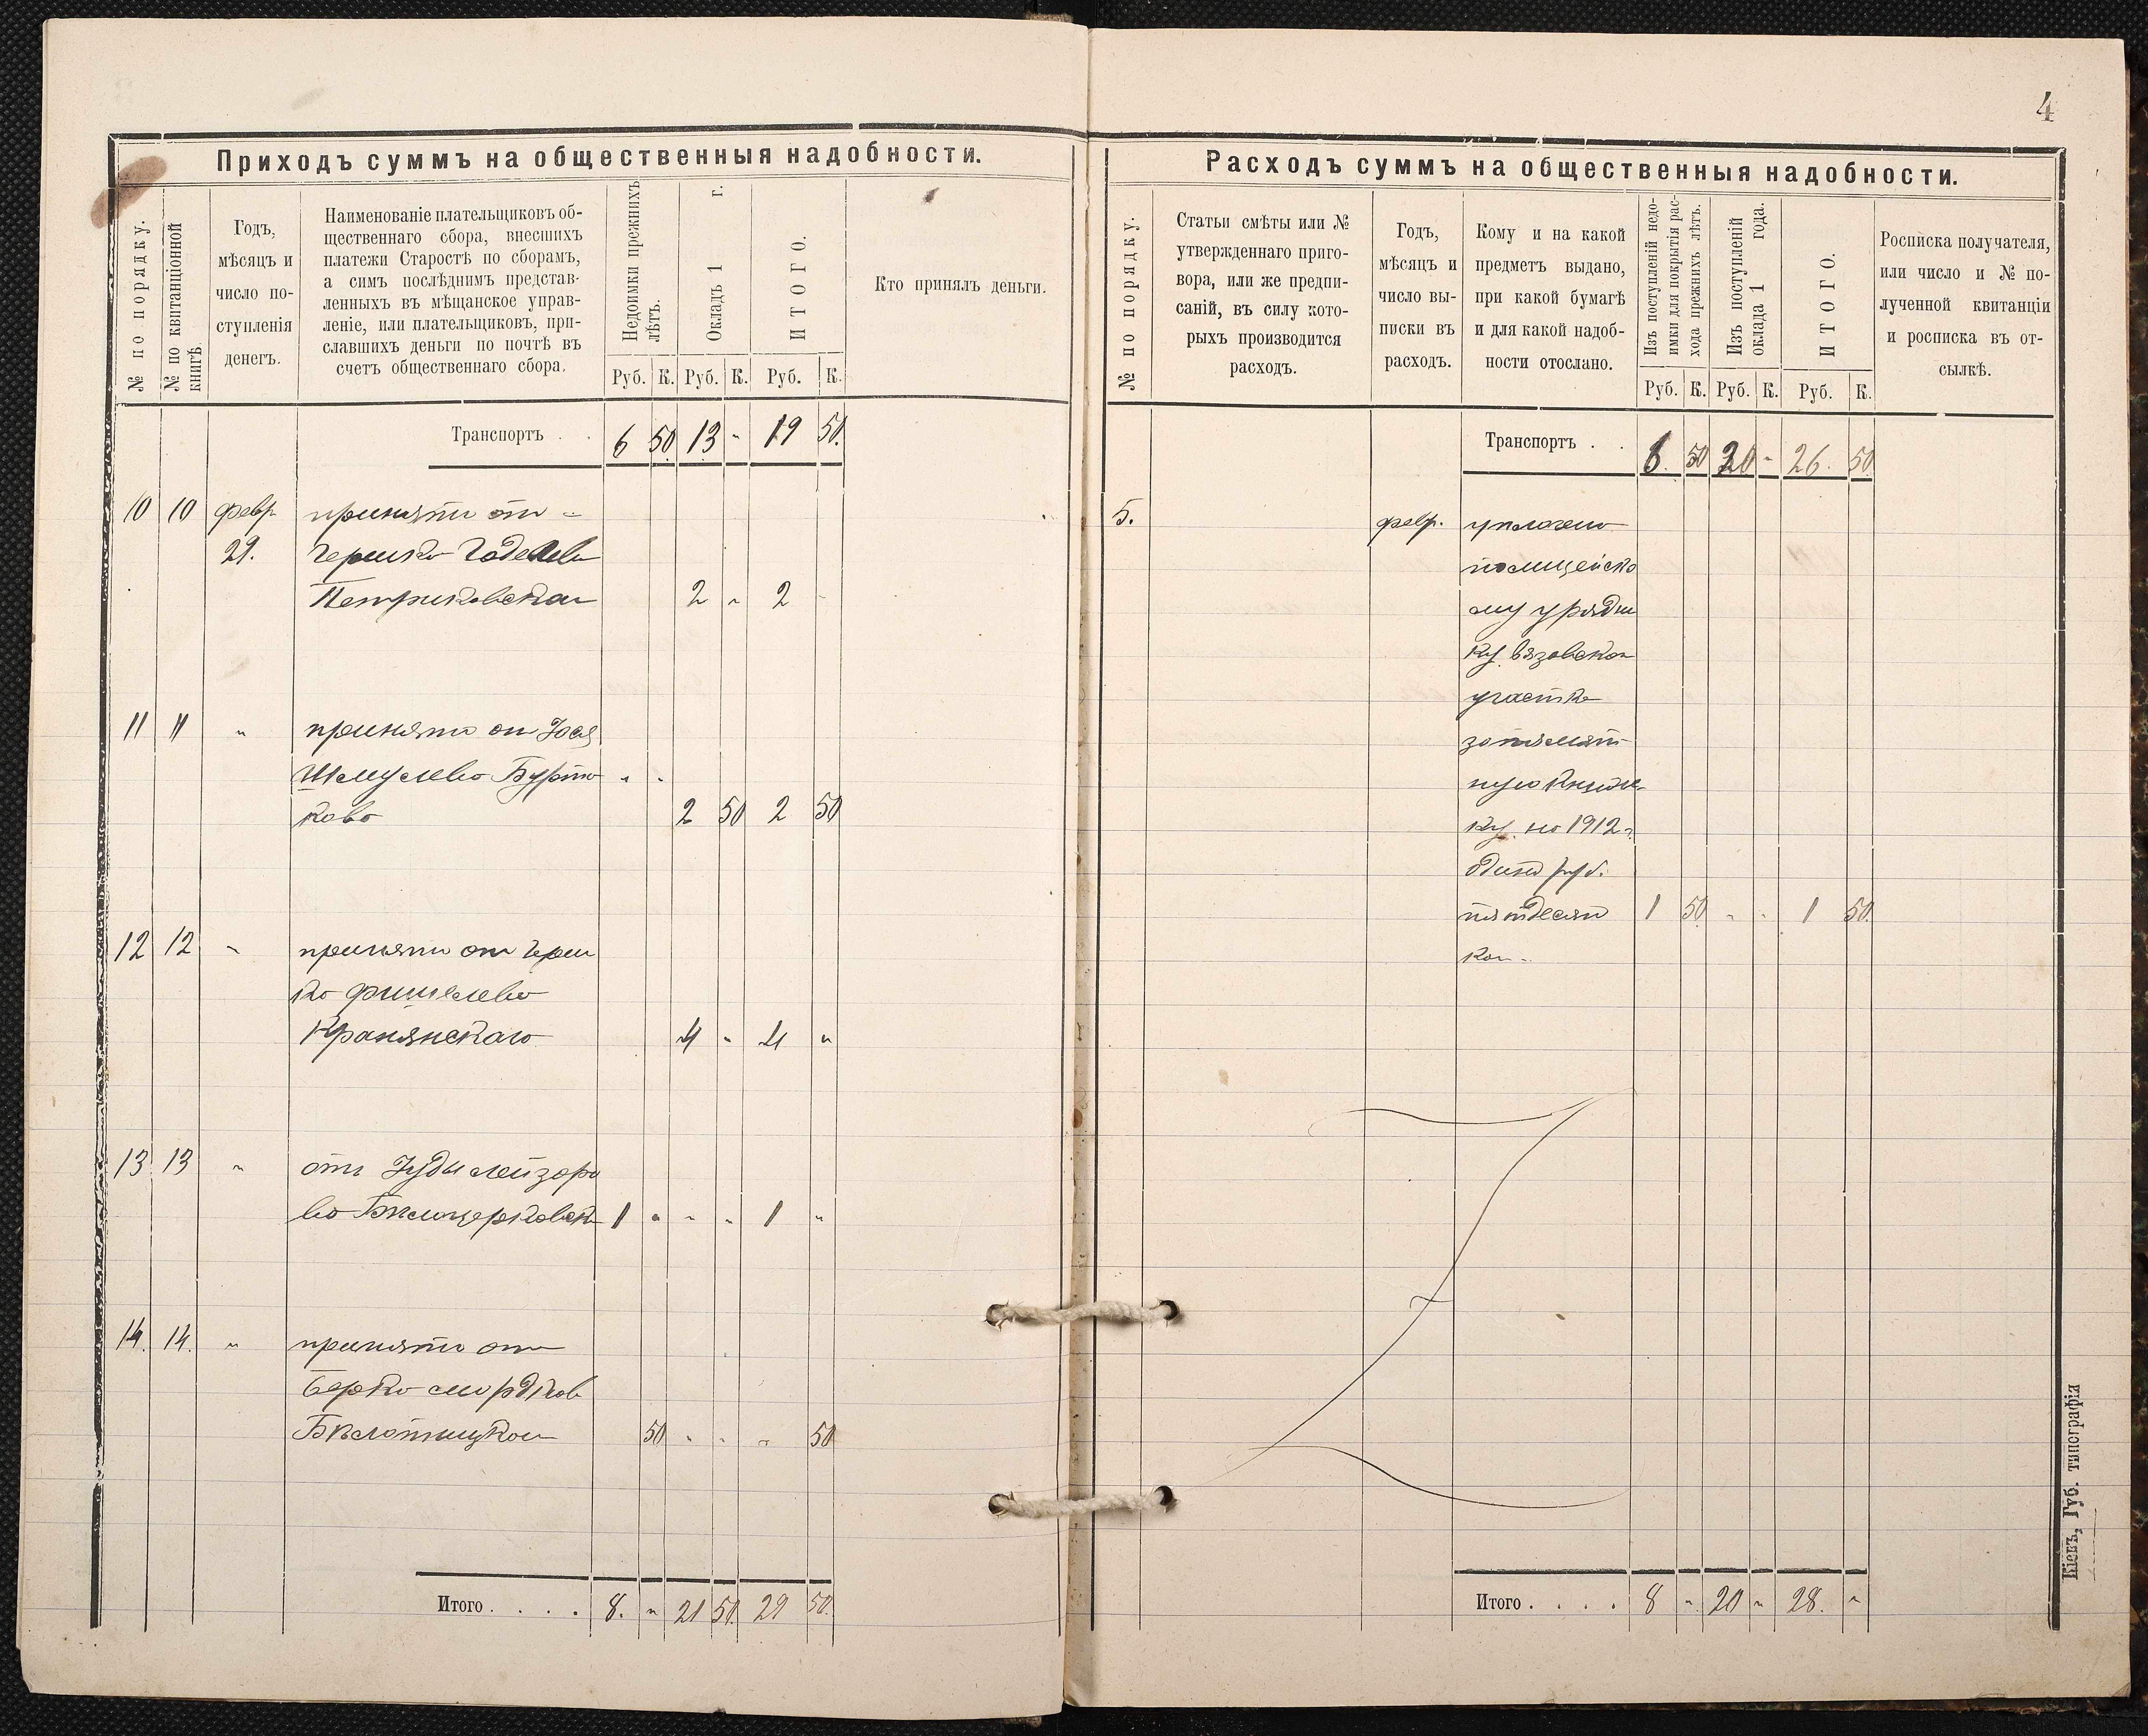 4
Приходъ суммъ на общественныя надобности.
№ по порядку.
№ по квитанціонной
книгѣ.
Годъ,
мѣсяцъ и
число по-
ступленія
денегъ.
Наименованіе плательщиковъ об-
щественнаго сбора, внесшихъ
платежи Старостѣ по сборамъ,
а симъ послѣднимъ представ-
ленныхъ въ мѣщанское управ-
леніе, или плательщиковъ, при-
славшихъ деньги по почтѣ въ
счетъ общественнаго сбора.
Недоимки прежнихъ
лѣтъ.
Окладъ 1 г.
ИТОГО.
Кто принялъ деньги.
Руб. К. Руб. К. Руб. К.
Транспортъ . . 6 50 13 - 19 50.
10 10 февр принято от
29. Гершко
Петриковскаг 2 " 2 -
11 11 " принято от Іося
Шмулево Бурта " "
ково 2 50 2 50
12 12 " принято от Герш
ко фишелево
Кранянскаго 4 " 4 "
13 13 " отъ Іуды лейзоро
во Бѣлоцерковск 1 " " " 1 "
14. 14. " принято от
Берко мордков
50 " " " 50
Итого. . . . 8. " 21 50. 29 50.
Расходъ суммъ на общественныя надобности.
№ по порядку.
Статьи смѣты или №
утвержденнаго приго-
вора, или же предпи-
саній, въ силу кото-
рыхъ производится
расходъ.
Годъ,
мѣсяцъ и
число вы-
писки въ
расходъ.
Кому и на какой
предметъ выдано,
при какой бумагѣ
и для какой надоб-
ности отослано.
Изъ поступленій недо-
имки для покрытія рас-
хода прежнихъ лѣтъ.
Изъ поступленій
оклада 1 года.
ИТОГО.
Росписка получателя,
или число и № по-
лученной квитанціи
и росписка въ от-
сылкѣ.
Руб. К. Руб. К. Руб. К.
Транспортъ . . 6. 50 20 - 26. 50
5. февр. уплочено
полицейско
му урядни
ку вязовског
участка
за памят
ную книж
ку на 1912 г.
один руб.
пятдесят 1 50 " " 1 50.
коп.
Итого . . . . 8 " 20 " 28. "
Кіевъ, Губ. типографія